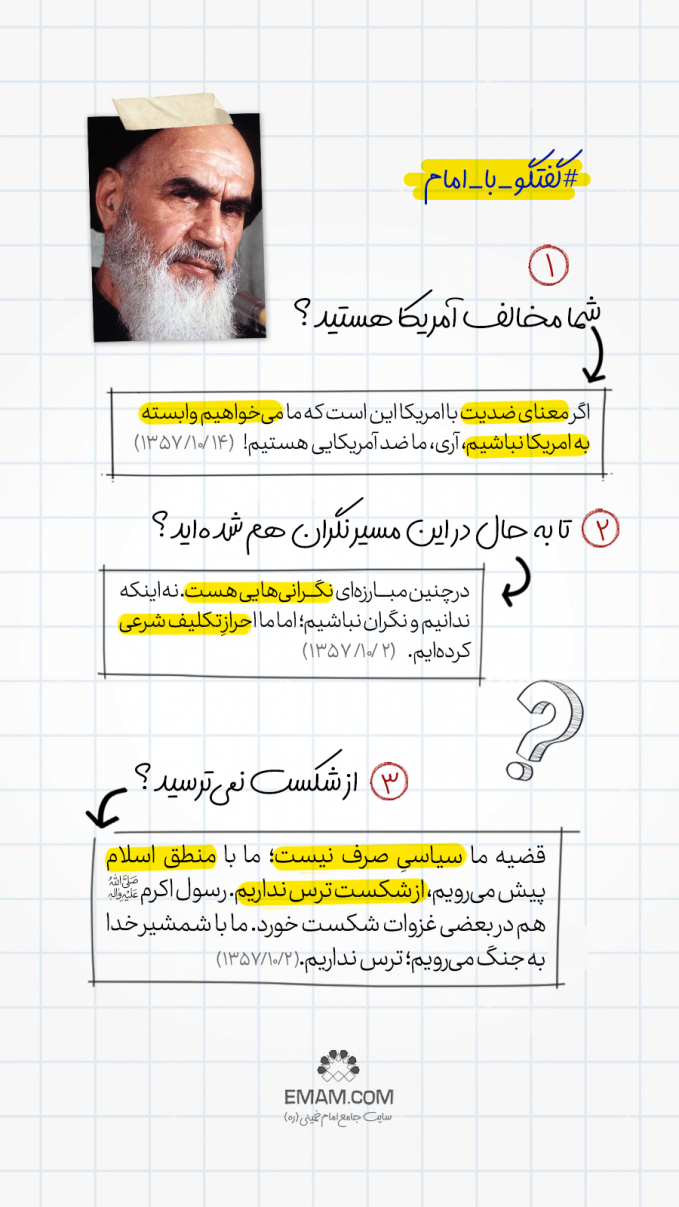 #گفتگو_با_امام
۱
شما مخالف آمریکا هستید؟
اگر معنای ضدیت با امریکا این است که ما می‌خواهیم وابسته
به امریکا نباشیم، آری، ما ضد آمریکایی هستیم! (۱۳۵۷/۱۰/۱۴)
۲ تا به حال در این مسیر نگران هم شده‌اید؟
در چنین مبـــارزه‌ای نگـــرانی‌هایی هست. نه اینکه
ندانیم و نگران نباشیم؛ اما ما احرازِ تکلیف شرعی
کرده‌ایم. (۱۳۵۷/۱۰/۲)
۳ از شکست نمی‌ترسید؟
قضیه ما سیاسیِ صرف نیست؛ ما با منطق اسلام
پیش می‌رویم، از شکست ترس نداریم. رسول اکرم ﷺ
هم در بعضی غزوات شکست خورد. ما با شمشیر خدا
به جنگ می‌رویم؛ ترس نداریم.(۱۳۵۷/۱۰/۲)
EMAM.COM
سایت جامع امام خمینی (ره)